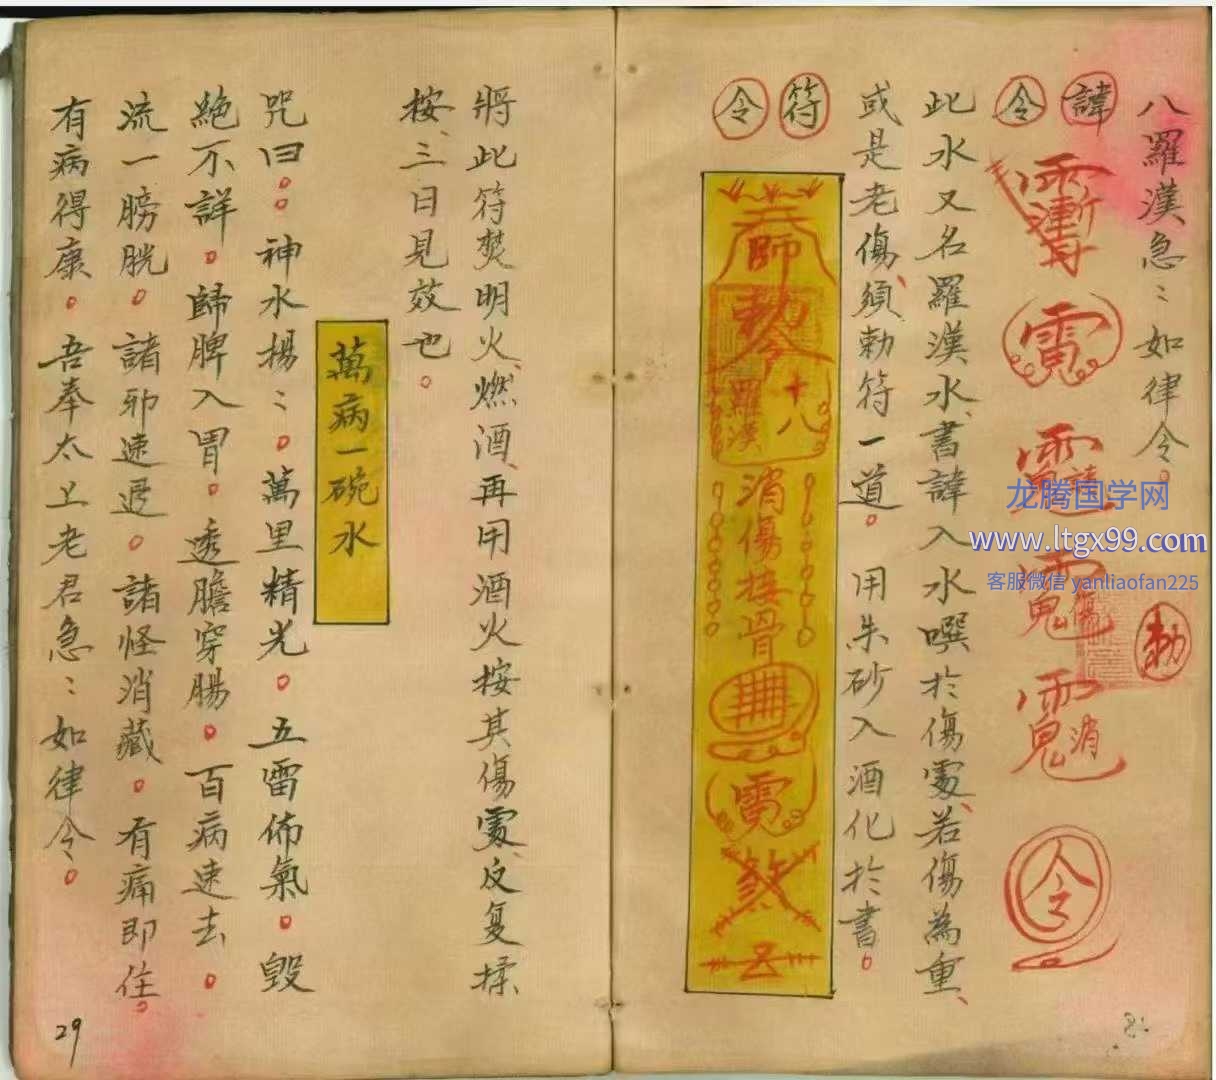 八羅漢急〻如律令。
諱令
勅令
此水又名羅漢水、書諱入水噀於傷處、若傷為重、
或是老傷、須勅符一道。用朱砂入酒化於書。
符令
師
勅令
十八
羅漢
消傷接骨
將此符焚明火、燃酒、再用酒火按其傷處、反复揉
按、三日見效也。
萬病一碗水
咒曰。。神水揚〻。萬里精光。五雷佈氣。毀
絶不詳。歸脾入胃。透膽穿腸。百病速去。
流一膀胱。諸邪速退。諸怪消藏。有痛即住。
有病得康。吾奉太上老君急〻如律令、。
29
龙腾国学网
www.ltgx99.com
客服微信 yanliaofan225